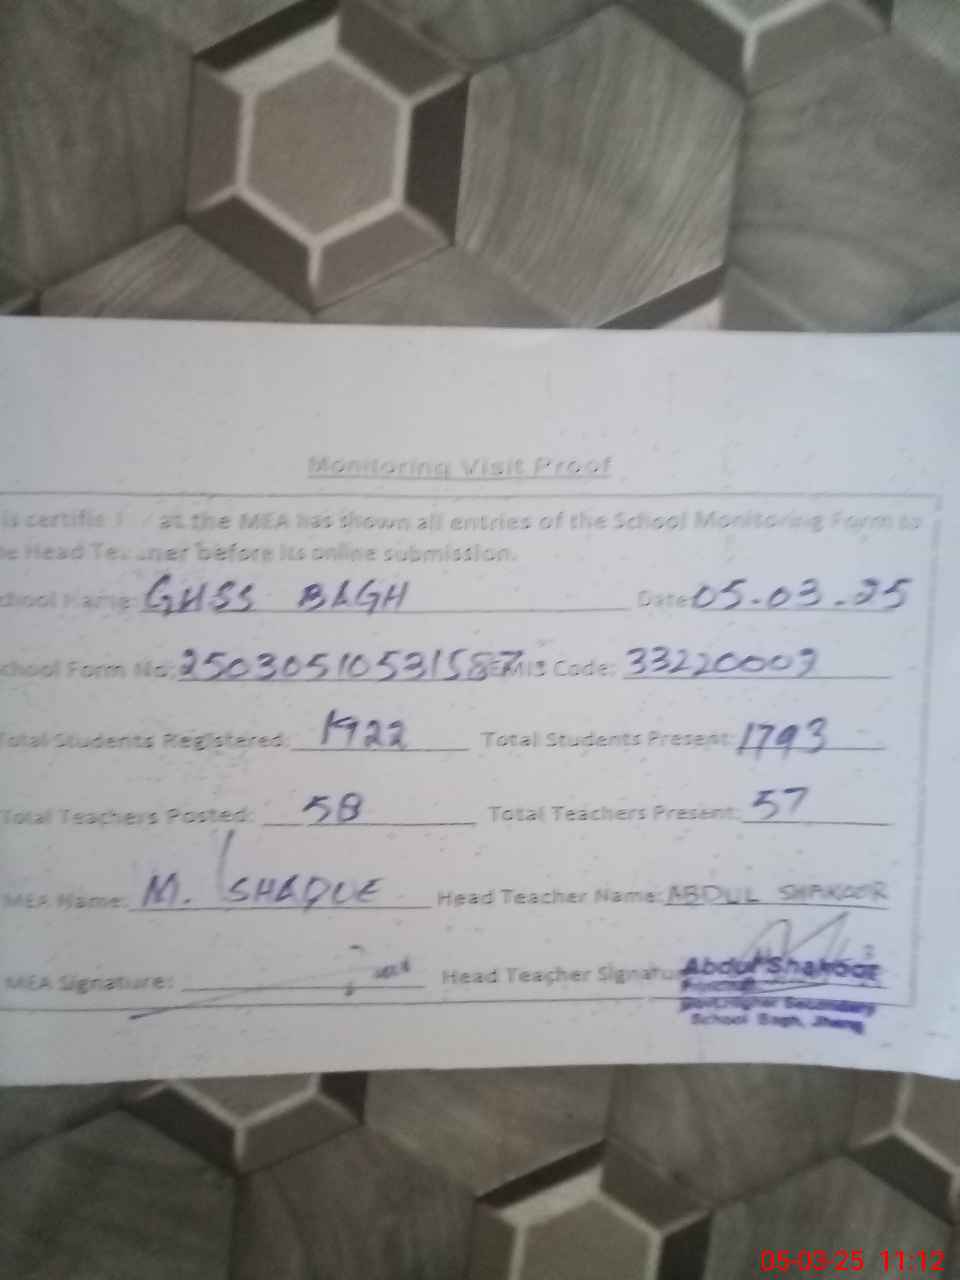 Monitoring Visit Proof
is certifie at the MEA has shown all entries of the School Monitoring Form to
he Head Teacher before its online submission.
chool Name: GHSS BAGH Date 05-03-25
chool Form No: 25030510531587 EMIS Code: 33220009
Total Students Registered: 1922 Total Students Present: 1793
Total Teachers Posted: 58 Total Teachers Present: 57
MEA Name: M. ISHAQUE Head Teacher Name: ABDUL SHAKOOR
MEA Signature: Head Teacher Signatu
Abdul Shakoor
Principal
Govt. Higher Secondary
School Bagh, Jhang
05-03-25 11:12